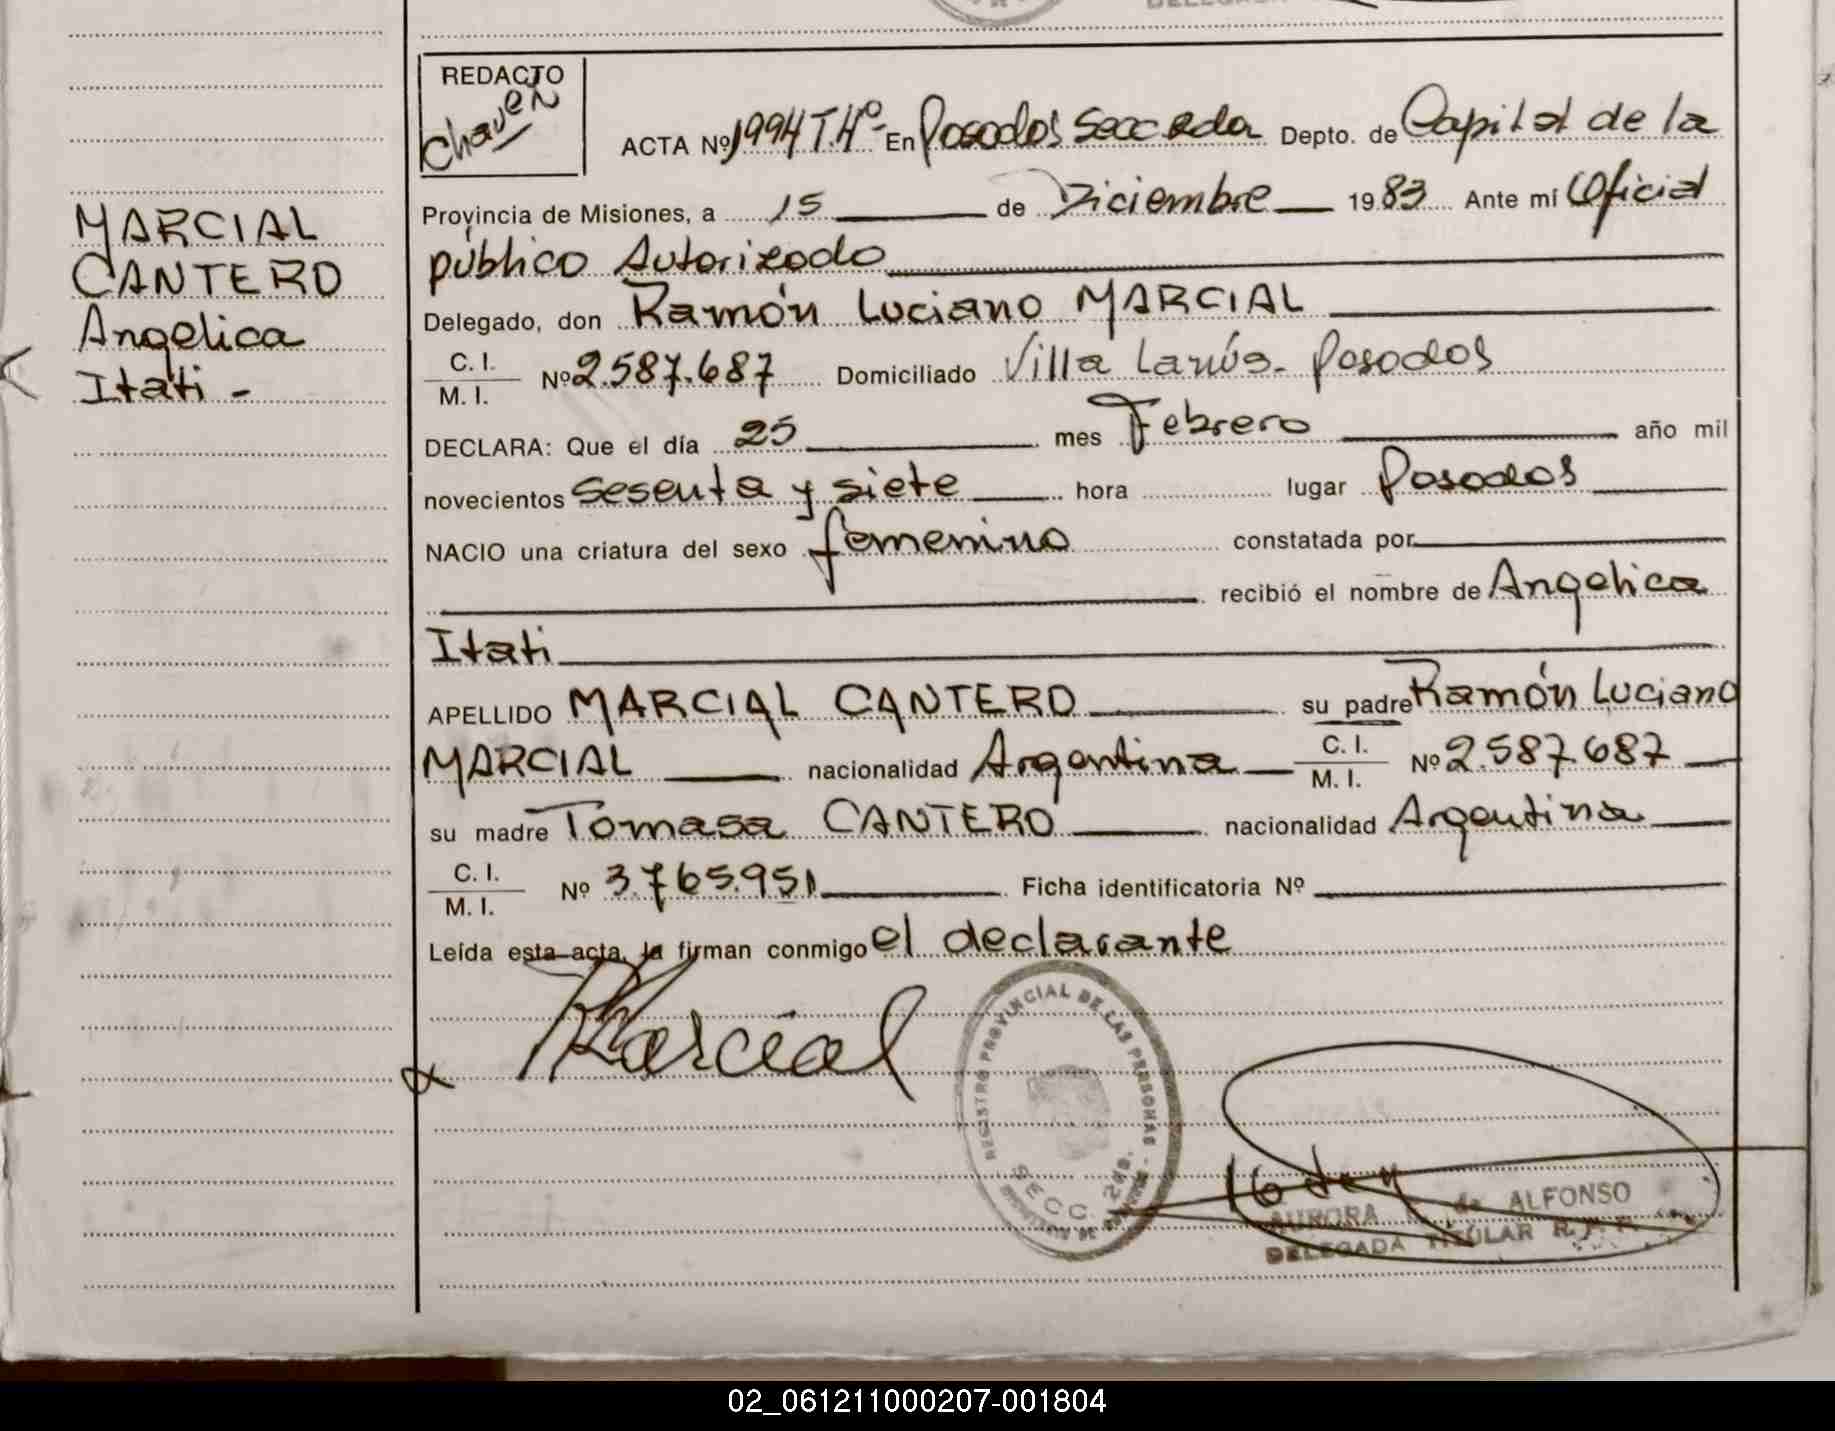 DELEGADA
REDACTO
Chavez
ACTA Nº 1994 T.4º- En Posadas Secc 2da Depto. de Capital de la
Provincia de Misiones, a 15 de Diciembre 1983 Ante mí Oficial
público Autorizado
Delegado, don Ramón Luciano MARCIAL
C. I.
M. I. Nº 2.587.687 Domiciliado Villa Lanús - Posadas
DECLARA: Que el día 25 mes Febrero año mil
novecientos sesenta y siete hora lugar Posadas
NACIO una criatura del sexo femenino constatada por
recibió el nombre de Angelica
Itati
APELLIDO MARCIAL CANTERO su padre Ramón Luciano
MARCIAL nacionalidad Argentina C. I. M. I. Nº 2.587.687
su madre Tomasa CANTERO nacionalidad Argentina
C. I.
M. I. Nº 3.765.951 Ficha identificatoria Nº
Leída esta acta, la firman conmigo el declarante
MARCIAL
CANTERO
Angelica
Itati -
Marcial
REGISTRO PROVINCIAL DE LAS PERSONAS
SECC. 2da.
AURORA de ALFONSO
DELEGADA TITULAR R. P. P.
02_061211000207-001804